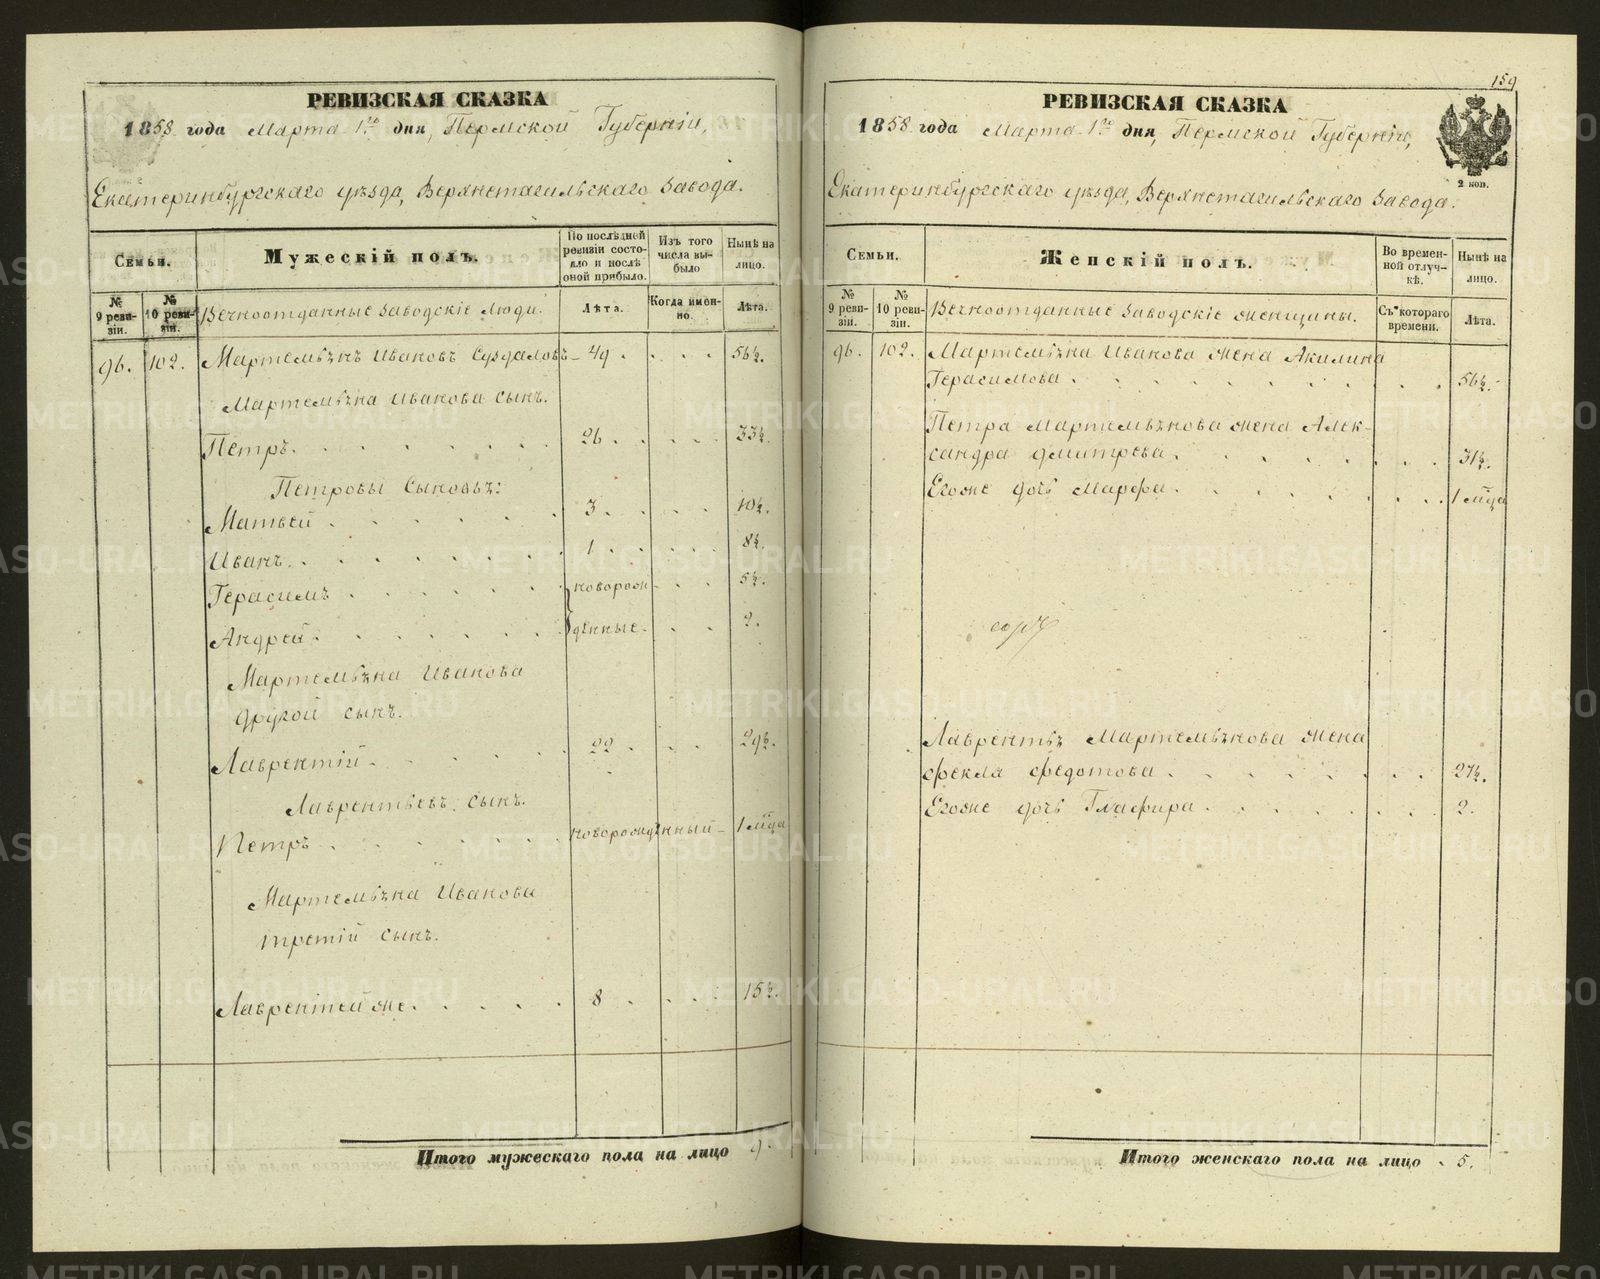 РЕВИЗСКАЯ СКАЗКА
1858 года Марта 1го дня, Пермской Губерніи,
Екатеринбургскаго уѣзда, Верхнетагильскаго Завода.
Семьи.
Мужескій полъ.
По послѣдней ревизіи состояло и послѣ оной прибыло.
Изъ того числа выбыло
Нынѣ на лицо.
№ 9 ревизіи.
№ 10 ревизіи.
Вечноотданные заводскіе люди.
Лѣта.
Когда именно.
Лѣта.
96. 102. Мартемьянъ Ивановъ Суздаловъ 49 56½.
Мартемьяна Иванова сынъ.
Петръ. 26 33½.
Петровы сыновья:
Матвей 3. 10½.
Иванъ. 1. 8½.
Герасимъ новорож- 5½.
Андрей. денные. 2.
Мартемьяна Иванова
другой сынъ.
Лаврентій. 22. 29½.
Лаврентьевъ сынъ.
Петръ новорожденный 1 мца
Мартемьяна Иванова
третій сынъ.
Лаврентей же. 8 15½.
Итого мужескаго пола на лицо 9.
159
РЕВИЗСКАЯ СКАЗКА
1858 года Марта 1го дня, Пермской Губерніи,
2 коп.
Екатеринбургскаго уѣзда, Верхнетагильскаго Завода.
Семьи.
Женскій полъ.
Во временной отлучкѣ.
Нынѣ на лицо.
№ 9 ревизіи.
№ 10 ревизіи.
Вечноотданные заводскіе женщины.
Съ котораго времени.
Лѣта.
96. 102. Мартемьяна Иванова жена Акилина
Герасимова. 56½.
Петра Мартемьянова жена Алек-
сандра Дмитрева. 31½.
Егоже дочь Марфа. 1 мца
Лаврентья Мартемьянова жена
Фекла Федотова. 27½.
Егоже дочь Глафира. 2.
Итого женскаго пола на лицо 5.
METRIKI.GASO-URAL.RU